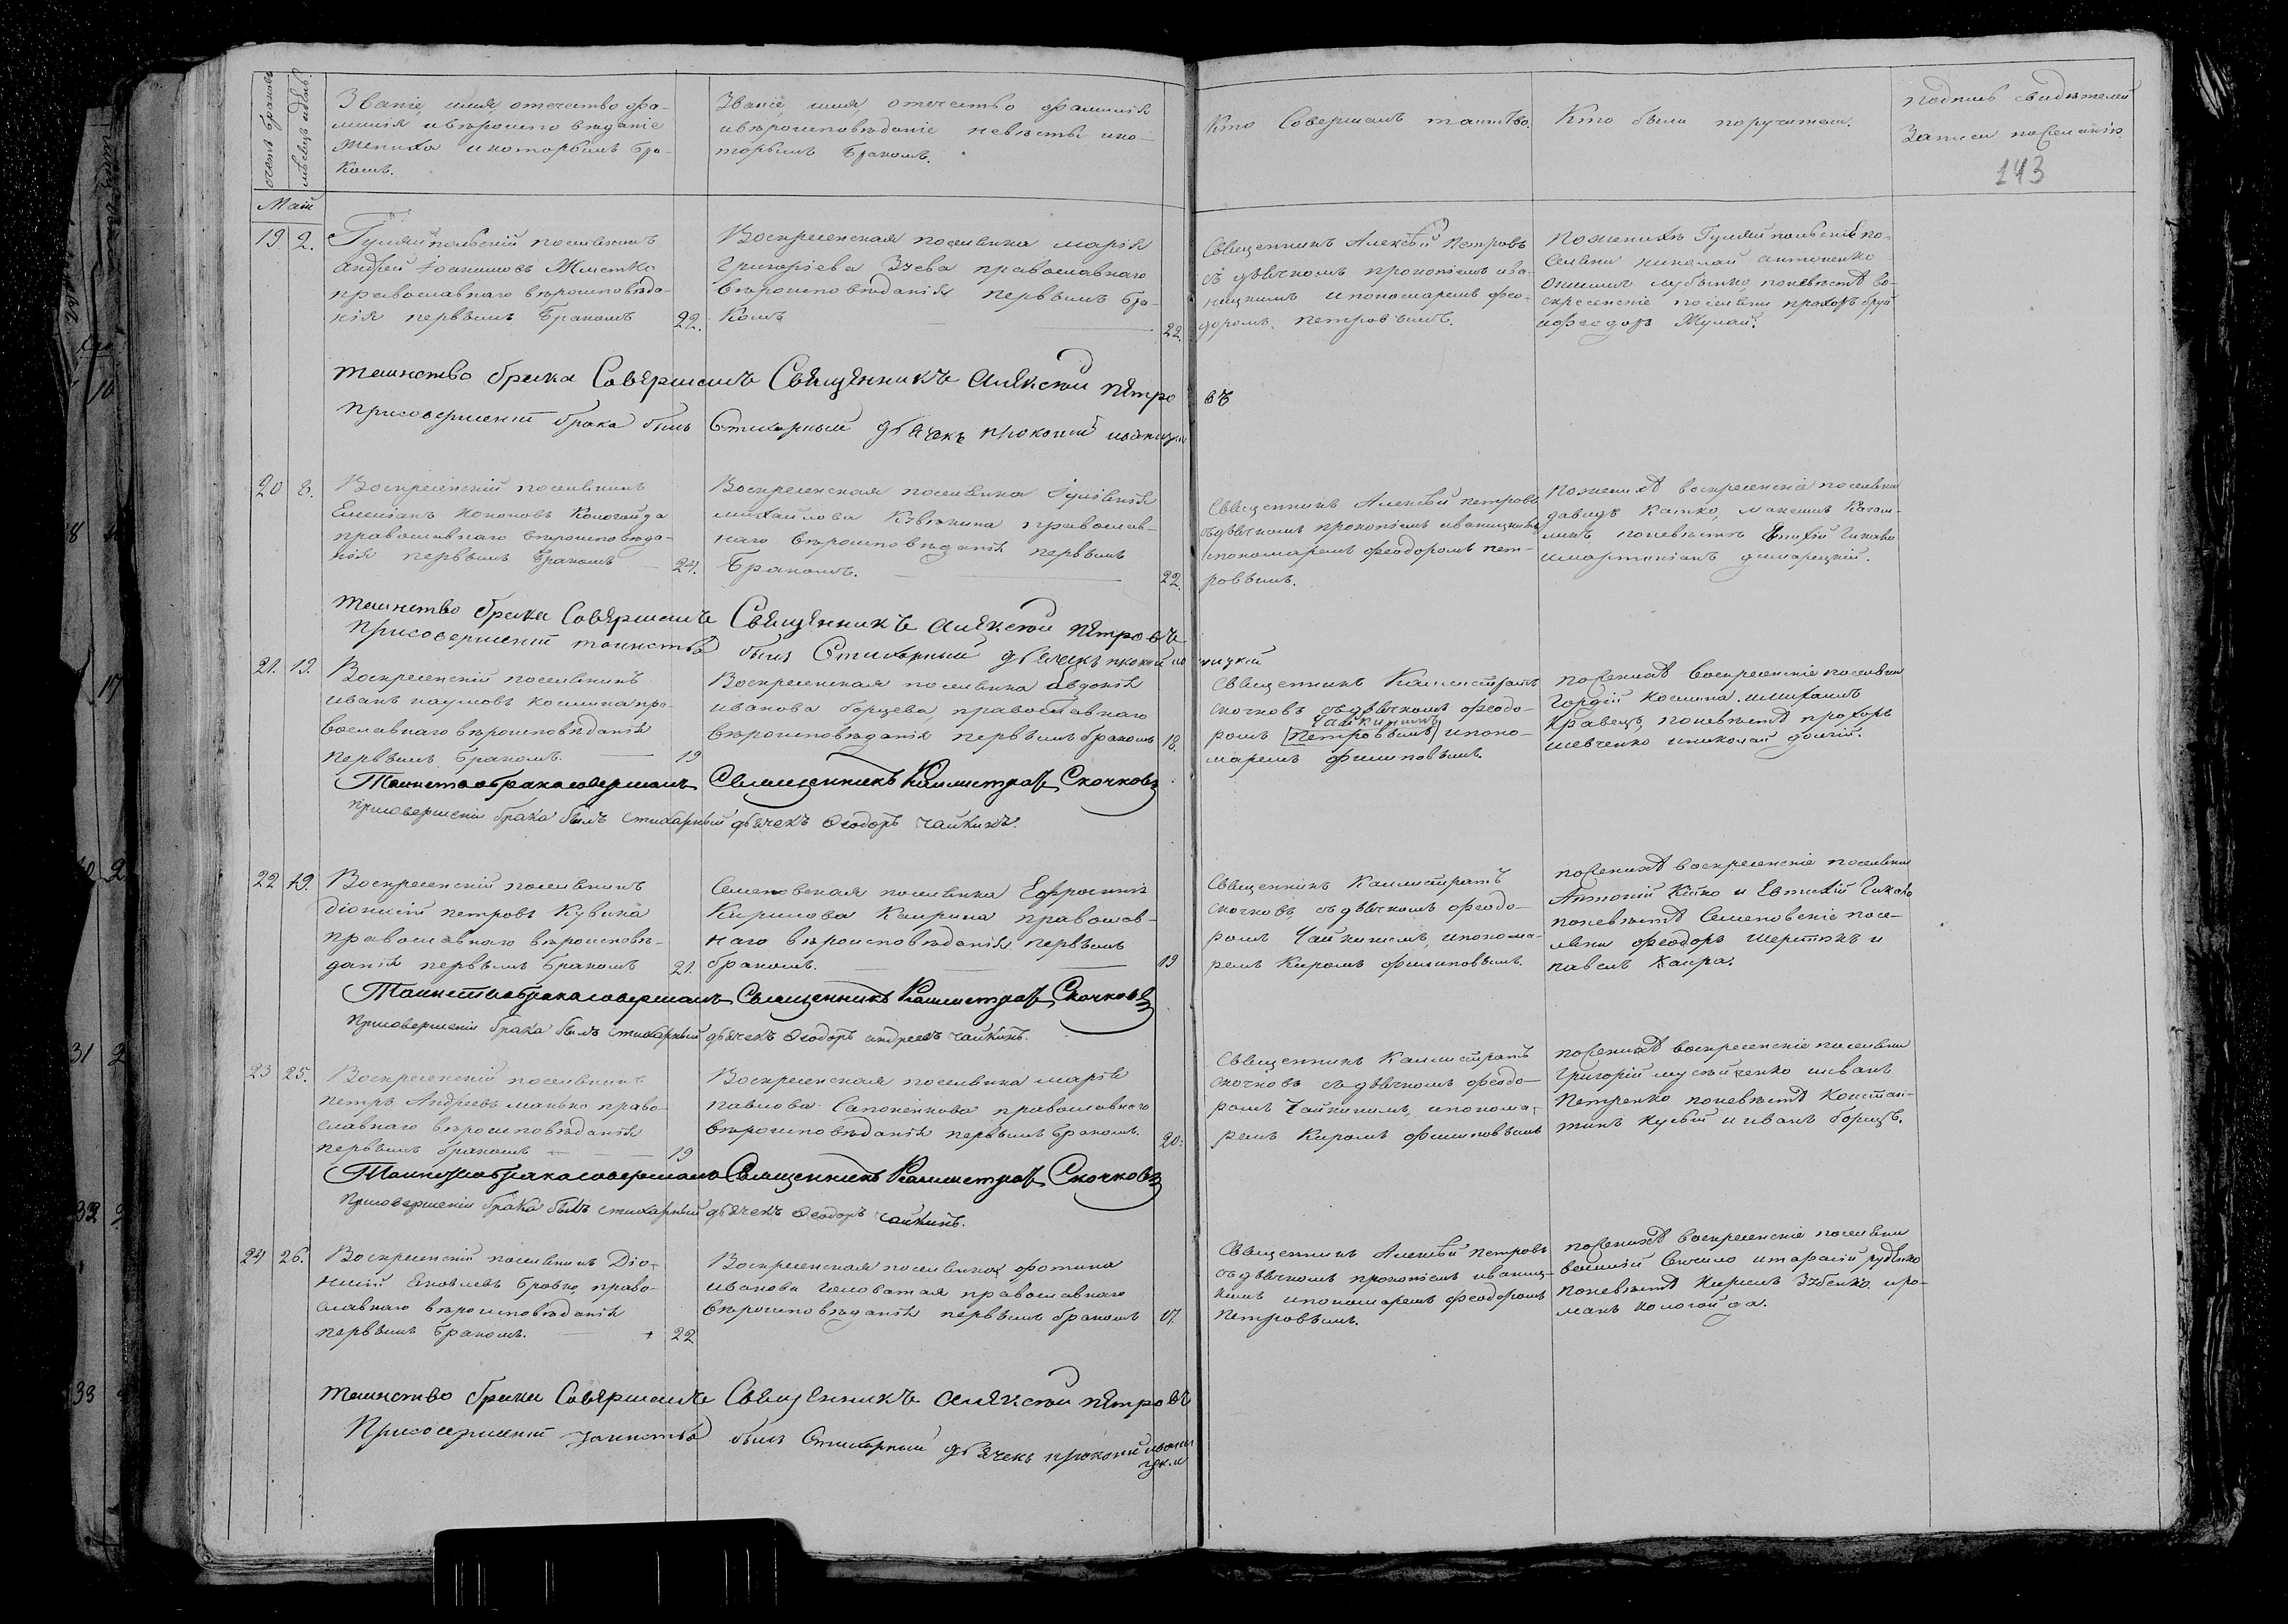 счетъ браковъ
мѣсяцъ и день
Званіе, имя, отечество фа-
милія и вѣроисповѣданіе
жениха и которымъ бра-
комъ.
Званіе имя, отечество фамилія
и вѣроисповѣданіе невѣсты и ко-
торымъ бракомъ.
Кто Совершалъ таинство.
Кто были поручители.
подпись свидѣтелей
Записи по желанію
143
Май
19 2. Гуляйпольскій поселянинъ
Андрей Іоакимовъ
православнаго вѣроисповѣда-
нія первымъ бракомъ 22.
Воскресенская поселянка марія
Григоріева Зуева православнаго
вѣроисповѣданія первымъ бра-
комъ 22.
Священникъ Алексѣй Петровъ
съ дьячкомъ прокопіемъ ива-
ницкимъ и пономаремъ фео-
доромъ петровымъ.
По женихѣ Гуляйпольскіе по-
селяни николай антоненко
по невѣстѣ во-
скресенскіе поселяни прохоръ
и феодоръ Жупай.
таинство брака Совершалъ Священникъ алексѣй петровъ
при совершеніи брака былъ Стихарный дьячекъ прокопій иваницкій
20 8. Воскресенскій поселянинъ
Емеліанъ Кононовъ Кологойда
православнаго вѣроисповѣда-
нія первымъ бракомъ 24.
Воскресенская поселянка Іуліанія
михайлова православ-
наго вѣроисповѣданія первымъ
бракомъ. 22.
Священникъ Алексѣй петровъ
съ дьячкомъ прокопіемъ иваницкимъ
и пономаремъ феодоромъ пет-
ровымъ.
по женихѣ воскресенскіе поселяни
давидъ максимъ
по невѣстѣ Евтихій Чикало
и мартиніанъ
таинство брака Совершалъ Священникъ алексѣй петровъ
при совершеніи таинства былъ Стихарный дьячекъ прокопій иваницкій
21. 19. Воскресенскій поселянинъ
иванъ наумовъ космина пра-
вославнаго вѣроисповѣданія
первымъ бракомъ. 19
Воскресенская поселянка Евдокія
иванова борцева, православнаго
вѣроисповѣданія первымъ бракомъ 18.
Священникъ Каллистратъ
скочковъ съ дьячкомъ феодо-
Чайкинымъ
ромъ петровымъ и поно-
маремъ филиповымъ.
по женихѣ воскресенскіе поселяни
Гордій космина и михаилъ
кравецъ, по невѣстѣ прохоръ
шевченко и николай долгій.
Таинство брака совершалъ Священникъ Каллистратъ Скочковъ
При совершеніи брака былъ стихарный дьячекъ Ѳеодоръ чайкинъ.
22 19. Воскресенскій поселянинъ
діонисій петровъ Кувика
православнаго вѣроисповѣ-
данія первымъ бракомъ 21.
Семеновская поселянка Ефросинія
Кирилова Каирина православ-
наго вѣроисповѣданія первымъ
бракомъ. 19
Священникъ Каллистратъ
скочковъ, съ дьячкомъ феодо-
ромъ Чайкинымъ, и понома-
ремъ Киромъ филиповымъ.
по женихѣ воскресенскіе поселяни
Антоній и Евтихій Чикало
по невѣстѣ Семеновскіе посе-
ляни феодоръ Шерстюкъ и
павелъ Каира.
Таинство брака совершалъ Священникъ Каллистратъ Скочковъ
При совершеніи брака былъ стихарный дьячекъ Ѳеодоръ андреевъ чайкинъ.
23 25. Воскресенскій поселянинъ
петръ Андреевъ манько право-
славнаго вѣроисповѣданія
первымъ бракомъ 19
Воскресенская поселянка марія
павлова Сапоненкова православнаго
вѣроисповѣданія первымъ бракомъ. 20.
Священникъ Каллистратъ
скочковъ съ дьячкомъ феодо-
ромъ Чайкинымъ, и понома-
ремъ Киромъ филиповымъ
по женихѣ воскресенскіе поселяни
григорій и иванъ
Петренко по невѣстѣ Констан-
тинъ и иванъ борецъ.
Таинство брака совершалъ Священникъ Каллистратъ Скочковъ
При совершеніи брака былъ стихарный дьячекъ Ѳеодоръ чайкинъ.
24 26. Воскресенскій поселянинъ Діо-
нисій Яковлевъ бровко право-
славнаго вѣроисповѣданія
первымъ бракомъ. 22
Воскресенская поселянка фотина
иванова Головатая православнаго
вѣроисповѣданія первымъ бракомъ 17.
Священникъ Алексѣй петровъ
съ дьячкомъ прокопіемъ иваниц-
кимъ и пономаремъ феодоромъ
петровымъ.
по женихѣ воскресенскіе поселяни
василій и тарасій руденко
по невѣстѣ Кирилъ Зубенко и ро-
манъ кологойда.
таинство брака Совершалъ Священникъ алексѣй петровъ
При совершеніи таинства былъ Стихарный дьячекъ прокопій иваницкій